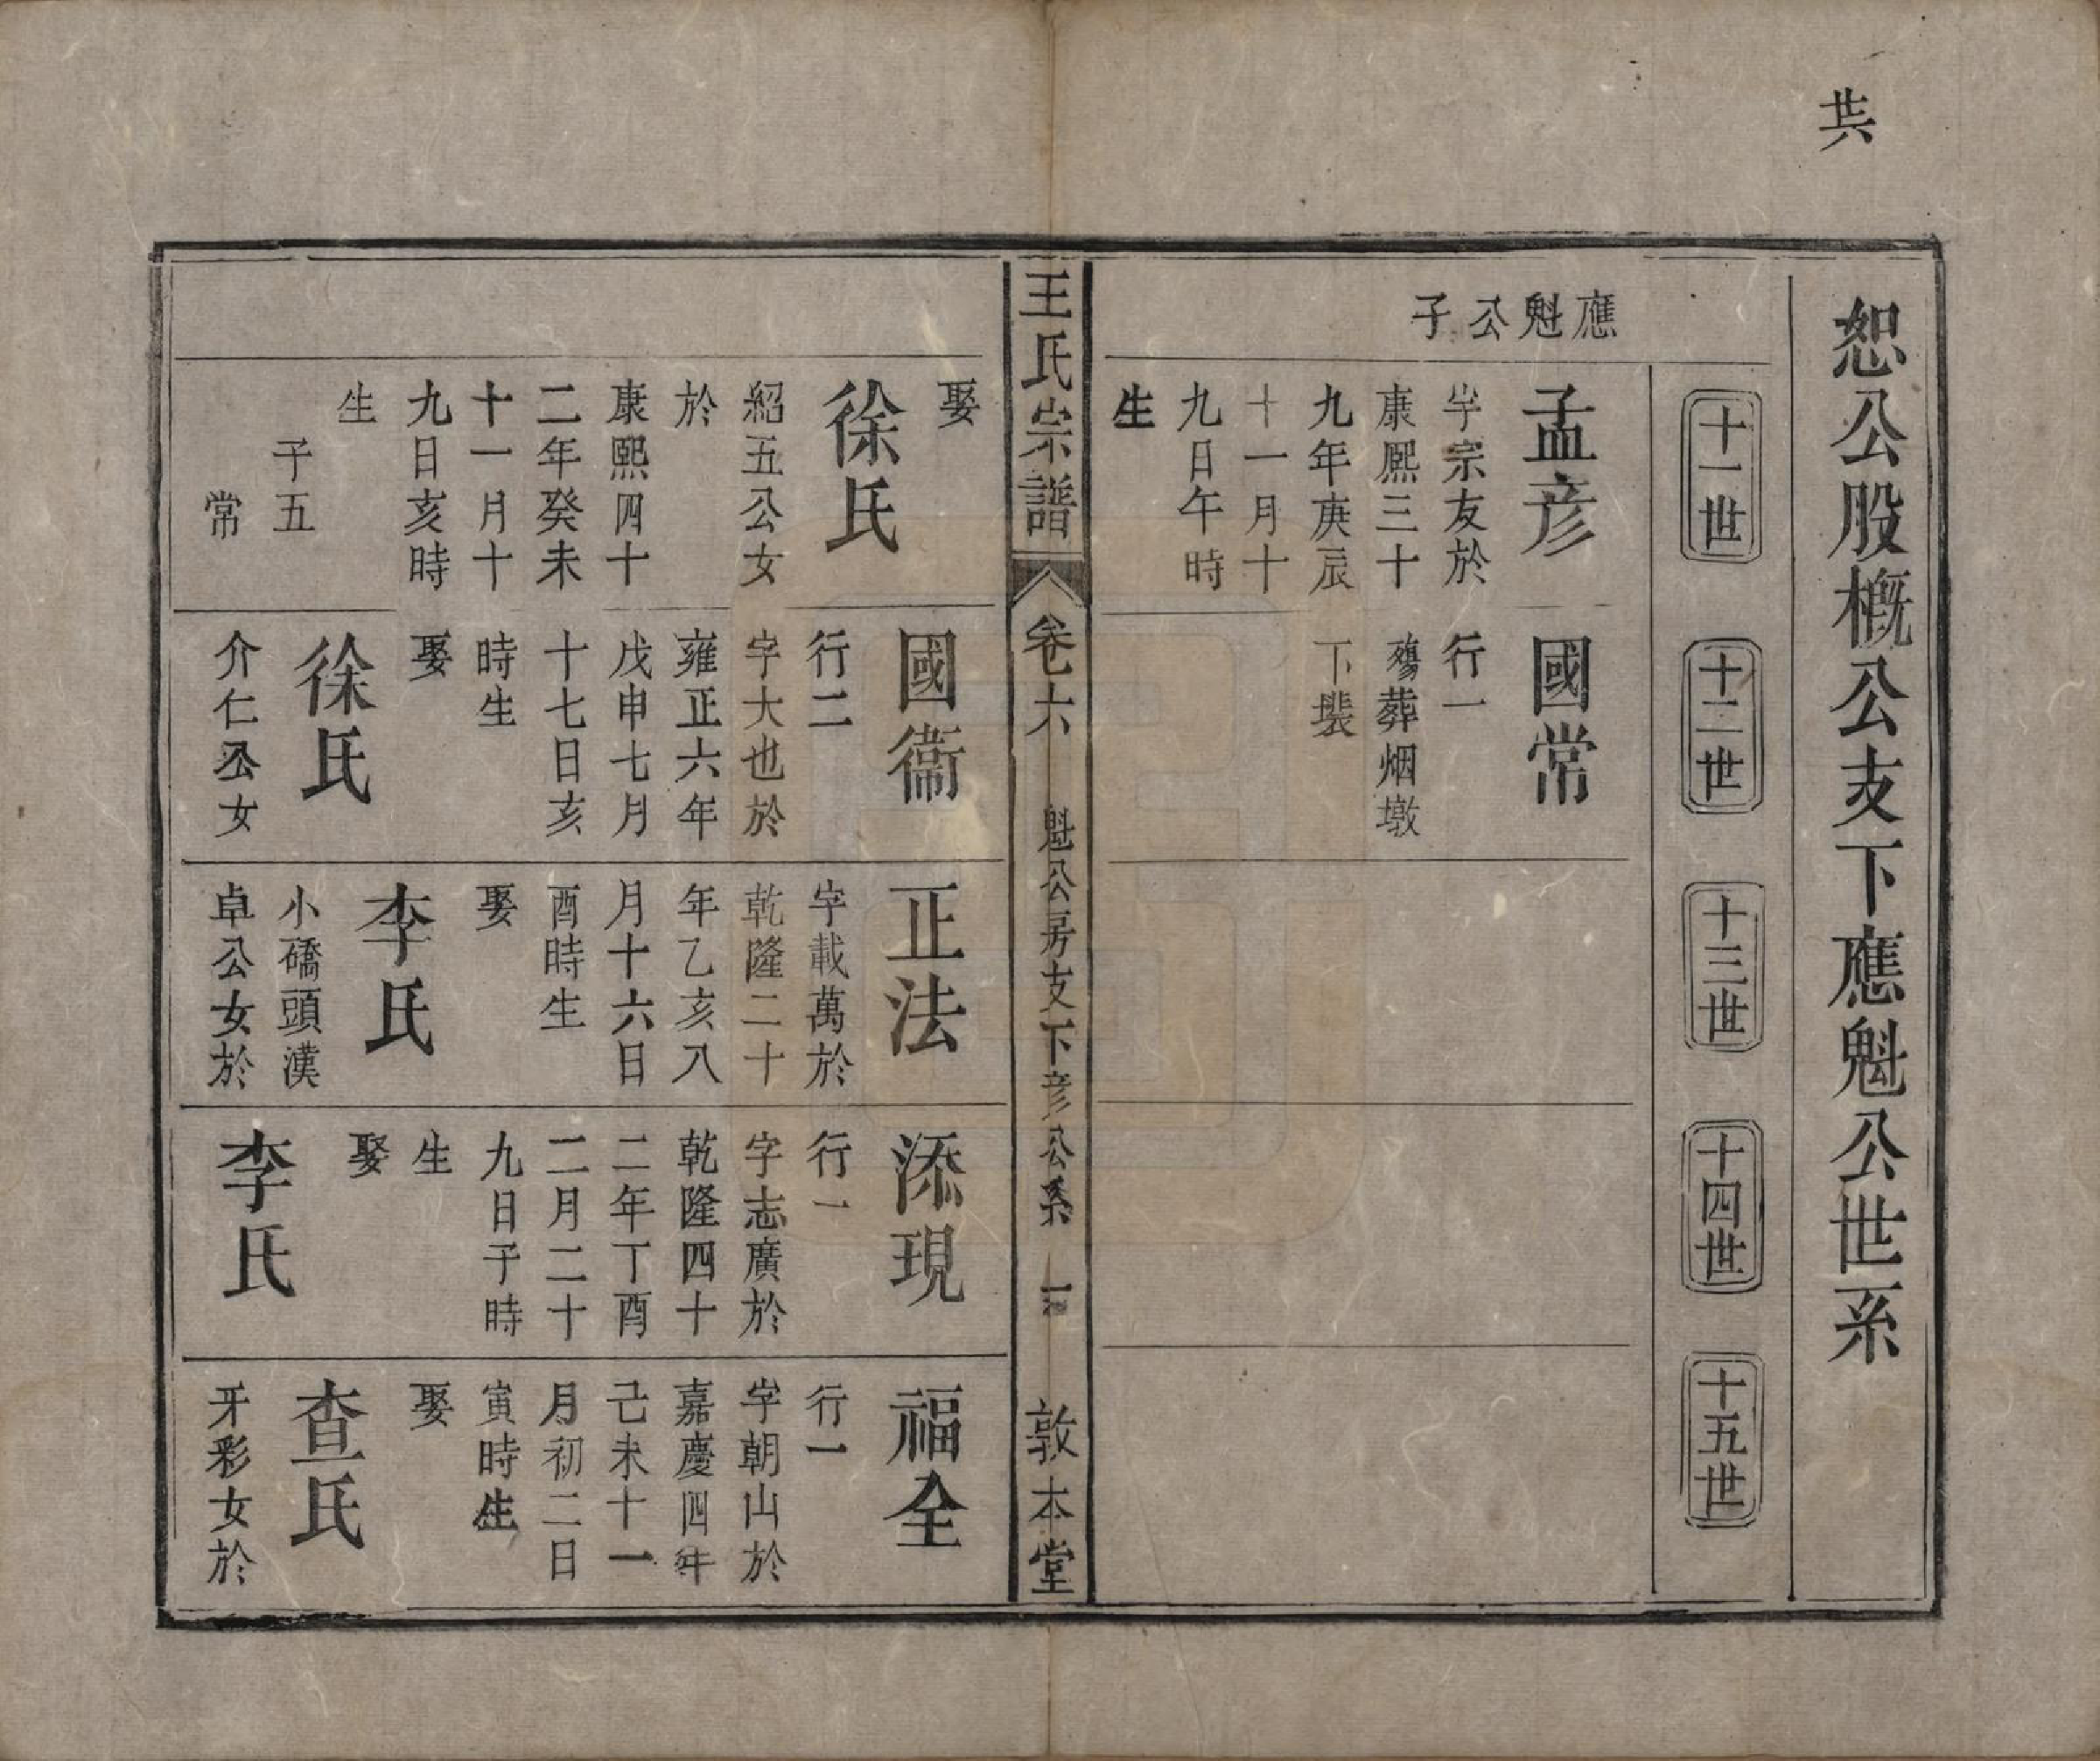 共
恕公股概公支下應魁公世系
十一世
十二世
十三世
十四世
十五世
應魁公子
孟彦
字宗友於
康熙三十
九年庚辰
十一月十
九日午時
生
國常
行一
殤葬烟墩
下㘷
王氏宗譜
卷六
魁公房支下彦公系
一
敦本堂
娶
徐氏
紹五公女
於
康熙四十
二年癸未
十一月十
九日亥時
生
子五
常
國衞
行二
字大也於
雍正六年
戊申七月
十七日亥
時生
娶
徐氏
介仁公女
正法
字載萬於
乾隆二十
年乙亥八
月十六日
酉時生
娶
李氏
小礄頭漢
卓公女於
添現
行一
字志廣於
乾隆四十
二年丁酉
二月二十
九日子時
生
娶
李氏
福全
行一
字朝山於
嘉慶四年
己未十一
月初二日
寅時生
娶
查氏
牙彩女於